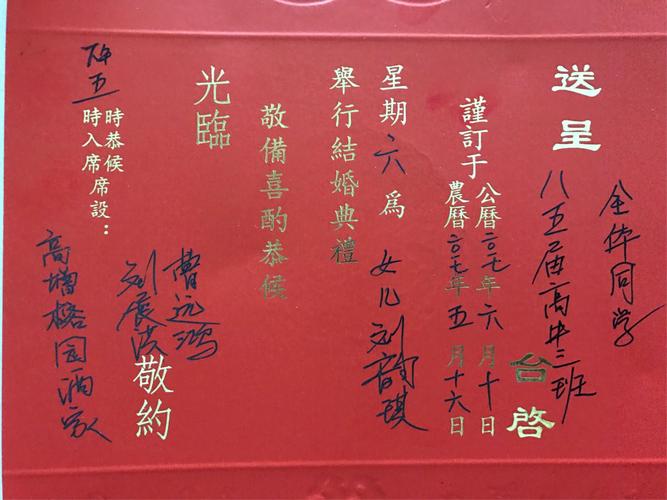 送呈
八五届高中三班
全体同学
台啓
謹訂于
公曆二〇一七年六月十日
農曆二〇一七年五月十六日
星期六爲女儿刘韵琪
舉行結婚典禮
敬備喜酌恭候
光臨
曹远鸿
刘展
敬約
下午五
時恭候
時入席席設：
高增榕园酒家